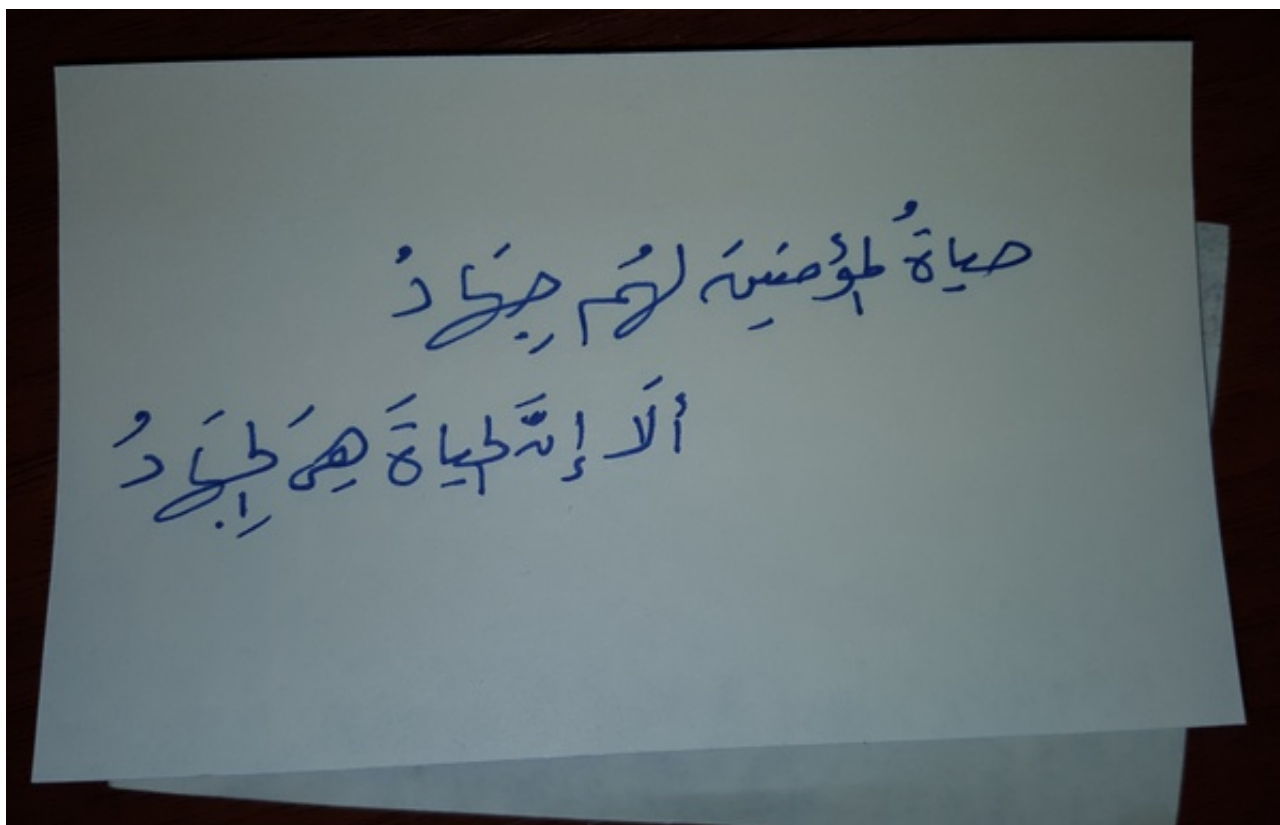 حياةُ المؤْمنِينَ لهُم جِهَادُ
أَلَا إِنَّ الحياةَ هِيَ الجِهَادُ